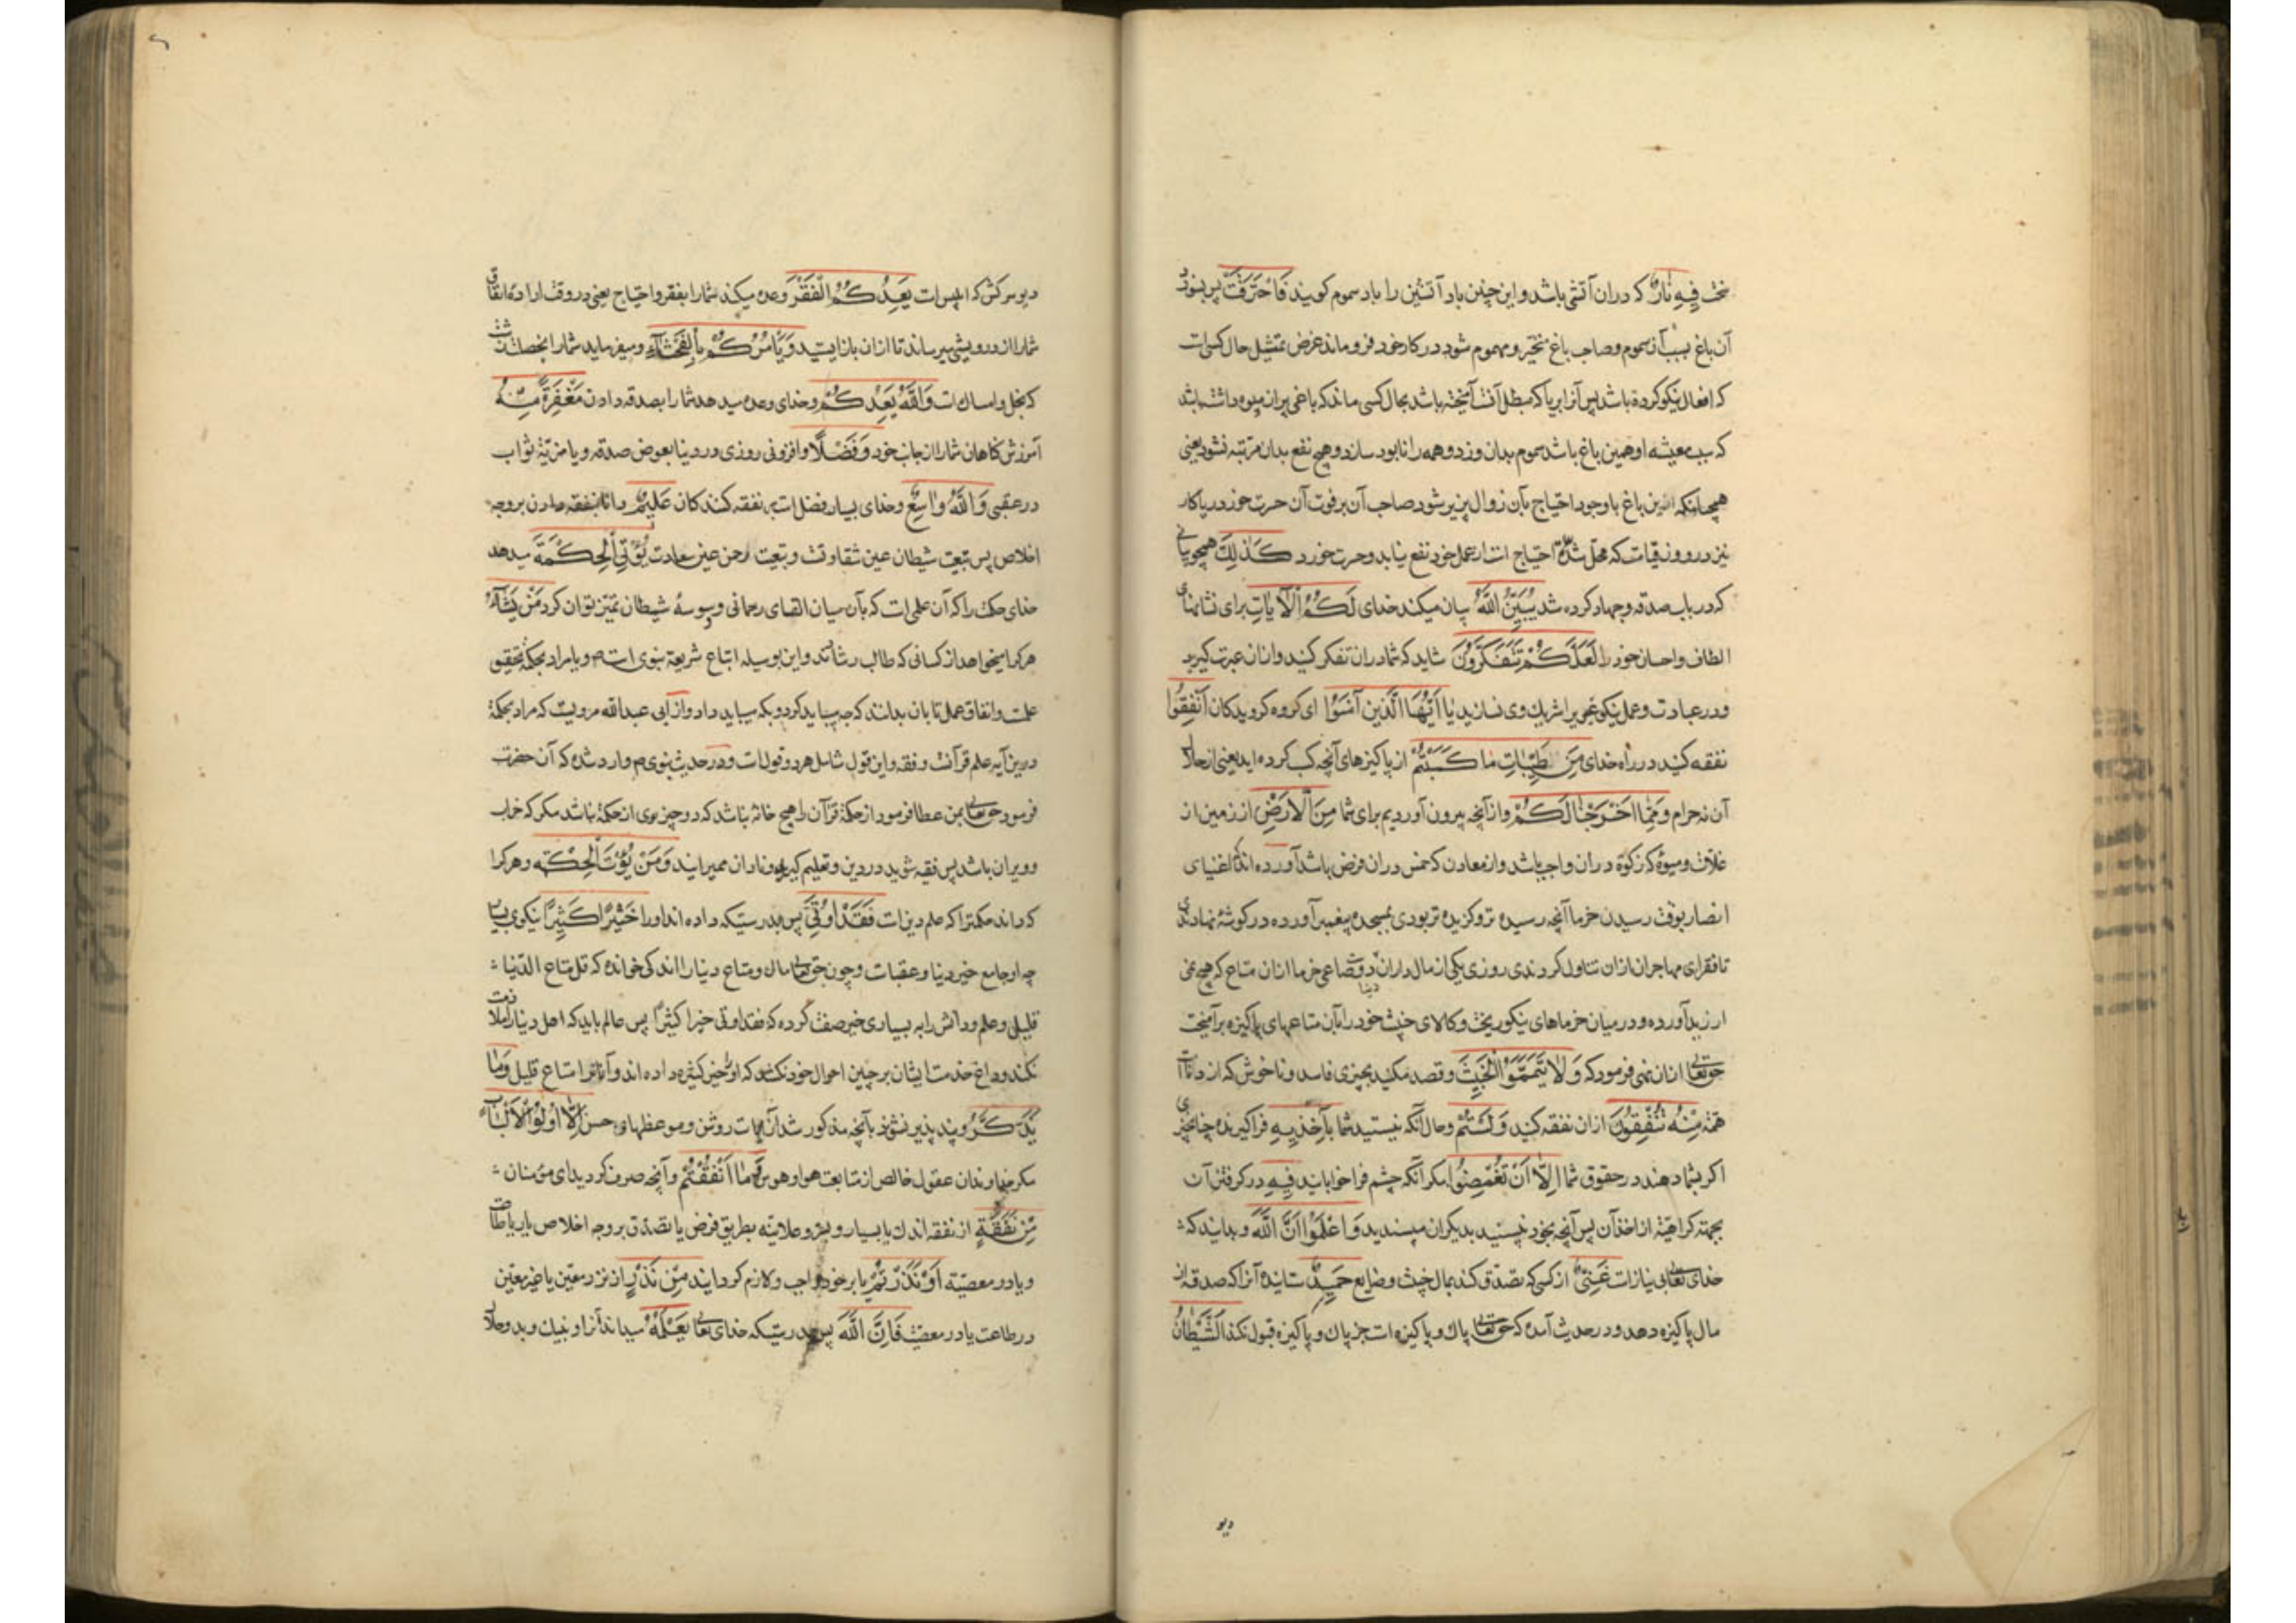 سخت فِیهِ نَارٌ که دران آتشی باشد و این چنین باد آتشین را باد سموم کویند فَاحْتَرَقَتْ پس بسوزد
آن باغ بسبب آن سموم و صاحب باغ متحیر و مهموم شود در کار خود فرو ماند غرض تمثیل حال کسی است
که افعال نیکو کرده باشد پس آنرا بریا که مبطل آنست آمیخته باشد بحال کسی ماند که باغی پران میوه داشته باشد
که سبب معیشه او همین باغ باشد سموم بدان وزد و همه را نابود سازد و هیچ نفع بدان مرتبه نشود یعنی
همچنانکه این باغ با وجود احتیاج بآن زوال پذیر شود صاحب آن بر فوت آن حسرت خورد ریاکار
نیز در روز قیامت که محل شدّة احتیاج است از عمل خود نفع نیابد و حسرت خورد کَذٰلِكَ همچو بیانی
که در باب صدقه و جهاد کرده شد یُبَیِّنُ اللّٰهُ بیان میکند خدای لَكُمُ الْآیَاتِ برای شما نشانهای
الطاف و احسان خود را لَعَلَّكُمْ تَتَفَكَّرُونَ شاید که شما دران تفکر کنید و ازان عبرت کیرید
و در عبادت و عمل نیکو غیر را شریك وی نسازید یَا اَیُّهَا الَّذِینَ آمَنُوا ای کروه کرویدکان اَنْفِقُوا
نفقه کنید در راه خدای مِنْ طَیِّبَاتِ مَا كَسَبْتُمْ از پاکیزهای آنچه کسب کرده اید یعنی از حلال
آن نه حرام وَمِمَّا اَخْرَجْنَا لَكُمْ و از آنچه بیرون آوردیم برای شما مِنَ الْاَرْضِ از زمین از
غلات و میوهٔ که زکوة دران واجب باشد و از معادن که خمس دران فرض باشد آورده اند که اغنیای
انصار بوقت رسیدن خرما آنچه رسیده تر و کزیده تر بودی بمسجد پیغمبر آورده در کوشهٔ نهادندی
تا فقرای مهاجران ازان تناول کردندی روزی یکی از مال داران دو صاعی خرما ازان متاع که هیچ نمی
ارزید آورده و در میان خرماهای نیکو ریخت و کالای خبیث خود را بآن متاعهای پاکیزه بر آمیخت
حق تعالی ازان نهی فرمود که وَلَا تَیَمَّمُوا الْخَبِیثَ و قصد مکنید بچیزی فاسد و ناخوش که از دنائت
همّة مِنْهُ تُنْفِقُونَ ازان نفقه کنید وَلَسْتُمْ و حال آنکه نیستید شما بِآخِذِیهِ فراکیرنده چنان چیزی
اکر بشما دهند در حقوق شما اِلَّا اَنْ تُغْمِضُوا مکر آنکه چشم فرا خوابانید فِیهِ در کرفتن آن
بجهة کراهیة از اخذ آن پس آنچه بخود نپسندید بدیکران مپسندید وَاعْلَمُوا اَنَّ اللّٰهَ و بدانید که
خدای تعالی بی نیازست غَنِیٌّ از کسی که تصدّق کند بمال خبیث و ضایع حَمِیدٌ ستاینده آنرا که صدقه از
مال پاکیزه دهد و در حدیث آمده که حق تعالی پاك و پاکیزه است جز پاك و پاکیزه قبول نکند اَلشَّیْطَانُ
دیو
دیو سرکش که ابلیس است یَعِدُكُمُ الْفَقْرَ وعده میکند شما را بفقر و احتیاج یعنی در وقت ارادهٔ انفاق
شما را از درویشی میرساند تا ازان باز ایستید وَیَأْمُرُكُمْ بِالْفَحْشَآءِ و میفرماید شما را بخصلت زشت
که بخل و امساك است وَاللّٰهُ یَعِدُكُمْ و خدای وعده میدهد شما را بصدقه دادن مَغْفِرَةً مِنْهُ
آمرزش کناهان شما را از جانب خود وَفَضْلًا و افزونی روزی در دنیا بعوض صدقه و یا مزیّة ثواب
در عقبی وَاللّٰهُ وَاسِعٌ و خدای بسیار فضل است بر نفقه کنندکان عَلِیمٌ دانا بنفقه دادن بر وجه
اخلاص پس تبعیت شیطان عین شقاوتست و تبعیت رحمن عین سعادت یُؤْتِی الْحِكْمَةَ میدهد
خدای حکمت را که آن علمی است که بآن میان القای رحمانی و وسوسهٔ شیطان تمیز توان کرد مَنْ یَشَآءُ
هر کرا میخواهد از کسانی که طالب رشادند و این بوسیله اتباع شریعة نبوی است ص و یا مراد بحکمة تحقیق
علمست و اتفاق عمل تا بآن بدانند که چه میباید کرد و بکه میباید داد و از ابی عبدالله مرویست که مراد بحکمة
درین آیه علم قرآنست و فقه و این قول شامل هر دو قول است و در حدیث نبوی ص وارد شده که آن حضرت
فرمود حق تعالی بمن عطا فرمود از حکمة قرآن را هیچ خانهٔ نباشد که درو چیزی از حکمة نباشد مکر که خراب
و ویران باشد پس فقیه شوید در دین و تعلیم کیرید و نادان ممیرانید وَمَنْ یُؤْتَ الْحِكْمَةَ و هر کرا
که داند حکمترا که علم دین است فَقَدْ اُوتِیَ پس بدرستیکه داده اند او را خَیْرًا كَثِیرًا نیکوی بسیار
چه او جامع خیر دنیا و عقباست و چون حق تعالی مال و متاع دنیا را اندکی خوانده که قل متاع الدّنیا
قلیل و علم و دانش را به بسیاری خیر صفت کرده که فقد اوتی خیرا کثیرا پس عالم باید که اهل دنیا را ملازمت
نکند و داغ خدمت ایشان بر جبین احوال خود نکشد که او را خیر کثیره داده اند و آنانرا متاع قلیل وَمَا
یَذَّكَّرُ و پند پذیر نشود بآنچه مذکور شد از آیات روشن و موعظهای حسن اِلَّا اُولُوا الْاَلْبَابِ
مکر خداوندان عقول خالص از متابعت هوا و هوس وَمَا اَنْفَقْتُمْ و آنچه صرف کردید ای مؤمنان
مِنْ نَفَقَةٍ از نفقه اندك یا بسیار و بسرّ و علانیه بطریق فرض یا تصدّق بر وجه اخلاص یا بریا طاعت
و یا در معصیّة اَوْ نَذَرْتُمْ یا بر خود واجب و لازم کردانید مِنْ نَذْرٍ از نذر معیّن یا غیر معیّن
در طاعت یا در معصیت فَاِنَّ اللّٰهَ پس بدرستیکه خدای تعالی یَعْلَمُهُ میداند آنرا و نیك و بد و حلال